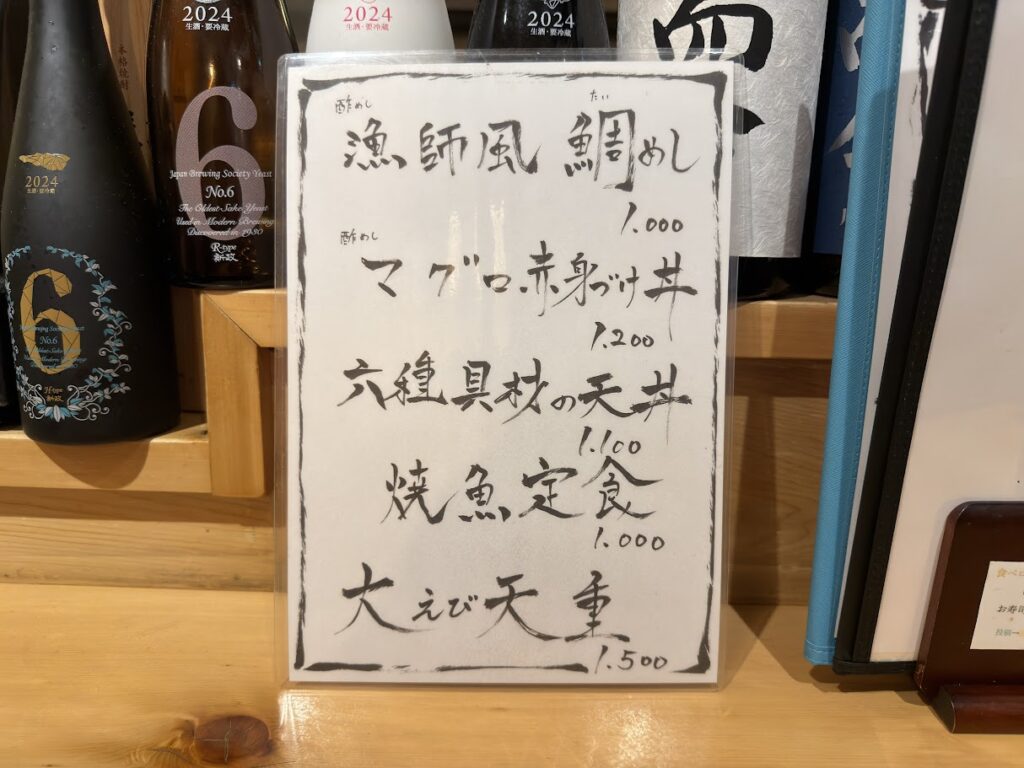 2024
生酒・要冷蔵
2024
生酒・要冷蔵
2024
生酒・要冷蔵
本格焼酎
2024
6
Japan Brewing Society Yeast
No.6
The Oldest Sake Yeast
Used in Modern Brewing
Discovered in 1930
R-type
新政
6
No.6
H-type
新政
酢めし
たい
漁師風 鯛めし
1.000
酢めし
マグロ赤身づけ丼
1.200
六種具材の天丼
1.100
焼魚定食
1.000
大えび天重
1.500
食べ
お寿司
投稿